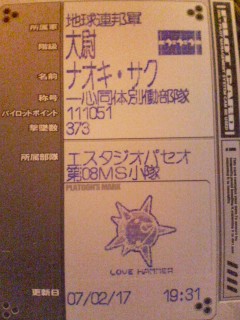 所属軍 地球連邦軍
階級 大尉
名前 ナオキ・サク
称号 一心同体別働部隊
パイロットポイント 111051
撃墜数 373
所属部隊 エスタジオパセオ
第08MS小隊
PLATOON'S MARK
LOVE HAMMER
更新日 07/02/17 19:31
PILOT CARD